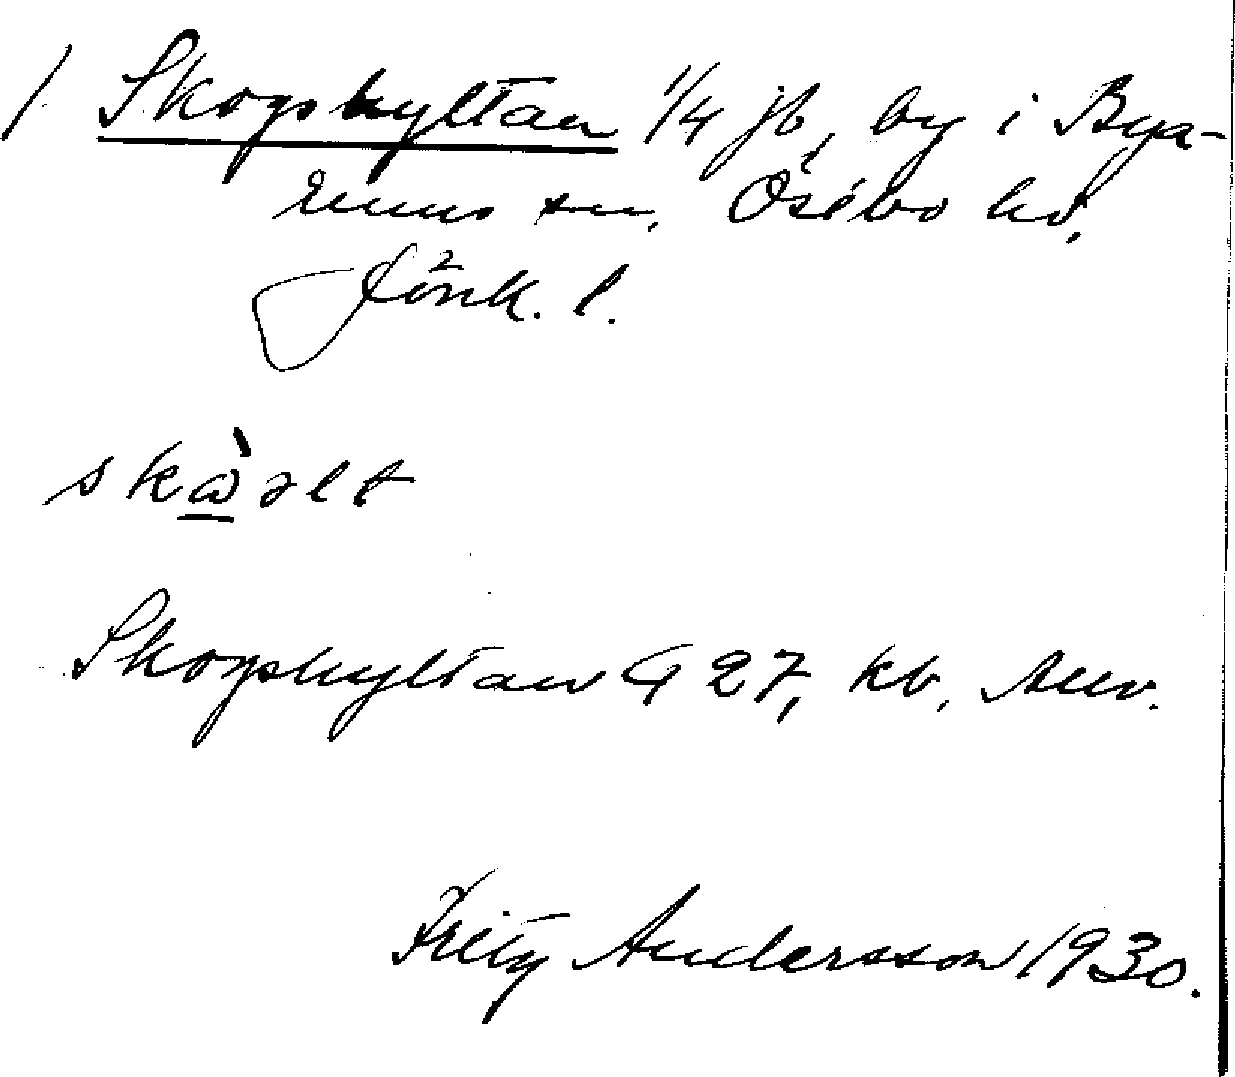 1. Skogshyltan 1/4 jb, by i Bya-
rums sn. Östbo hd,
Jönk. l.
skὼəlt
Skogshyltan G 27, kb,
Fritz Andersson 1930.